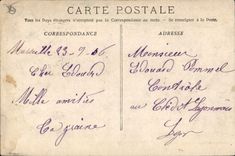 CARTE POSTALE
Tous les Pays étrangers n'acceptent pas la Correspondance au recto. - Se renseigner à la Poste.
CORRESPONDANCE
Marseille 23-9-06
Cher Edouard
Mille amitiés
ADRESSE
Monsieur
Edouard Pommel
Contrôle
au Crédit Lyonnais
Lyon